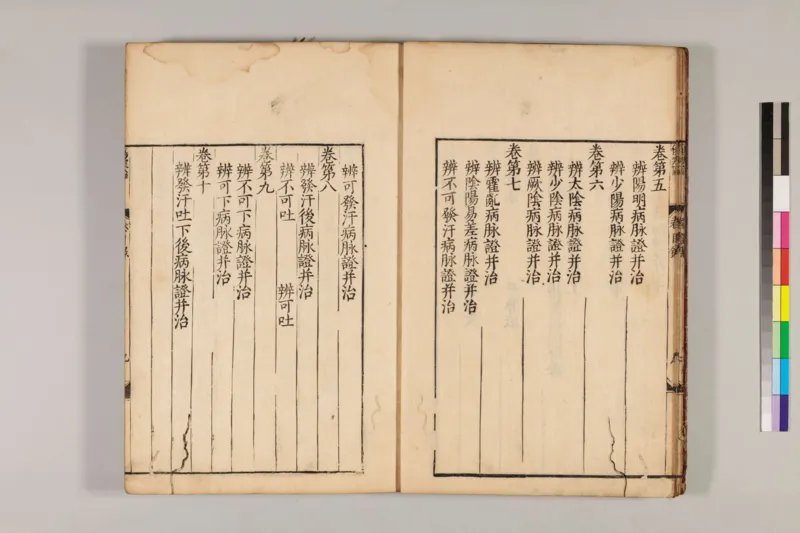 卷第五
辨陽明病脉證并治
辨少陽病脉證并治
卷第六
辨太陰病脉證并治
辨少陰病脉證并治
辨厥陰病脉證并治
卷第七
辨霍亂病脉證并治
辨陰陽易差病脉證并治
辨不可發汗病脉證并治
辨可發汗病脉證并治
卷第八
辨發汗後病脉證并治
辨不可吐 辨可吐
卷第九
辨不可下病脉證并治
辨可下病脉證并治
卷第十
辨發汗吐下後病脉證并治